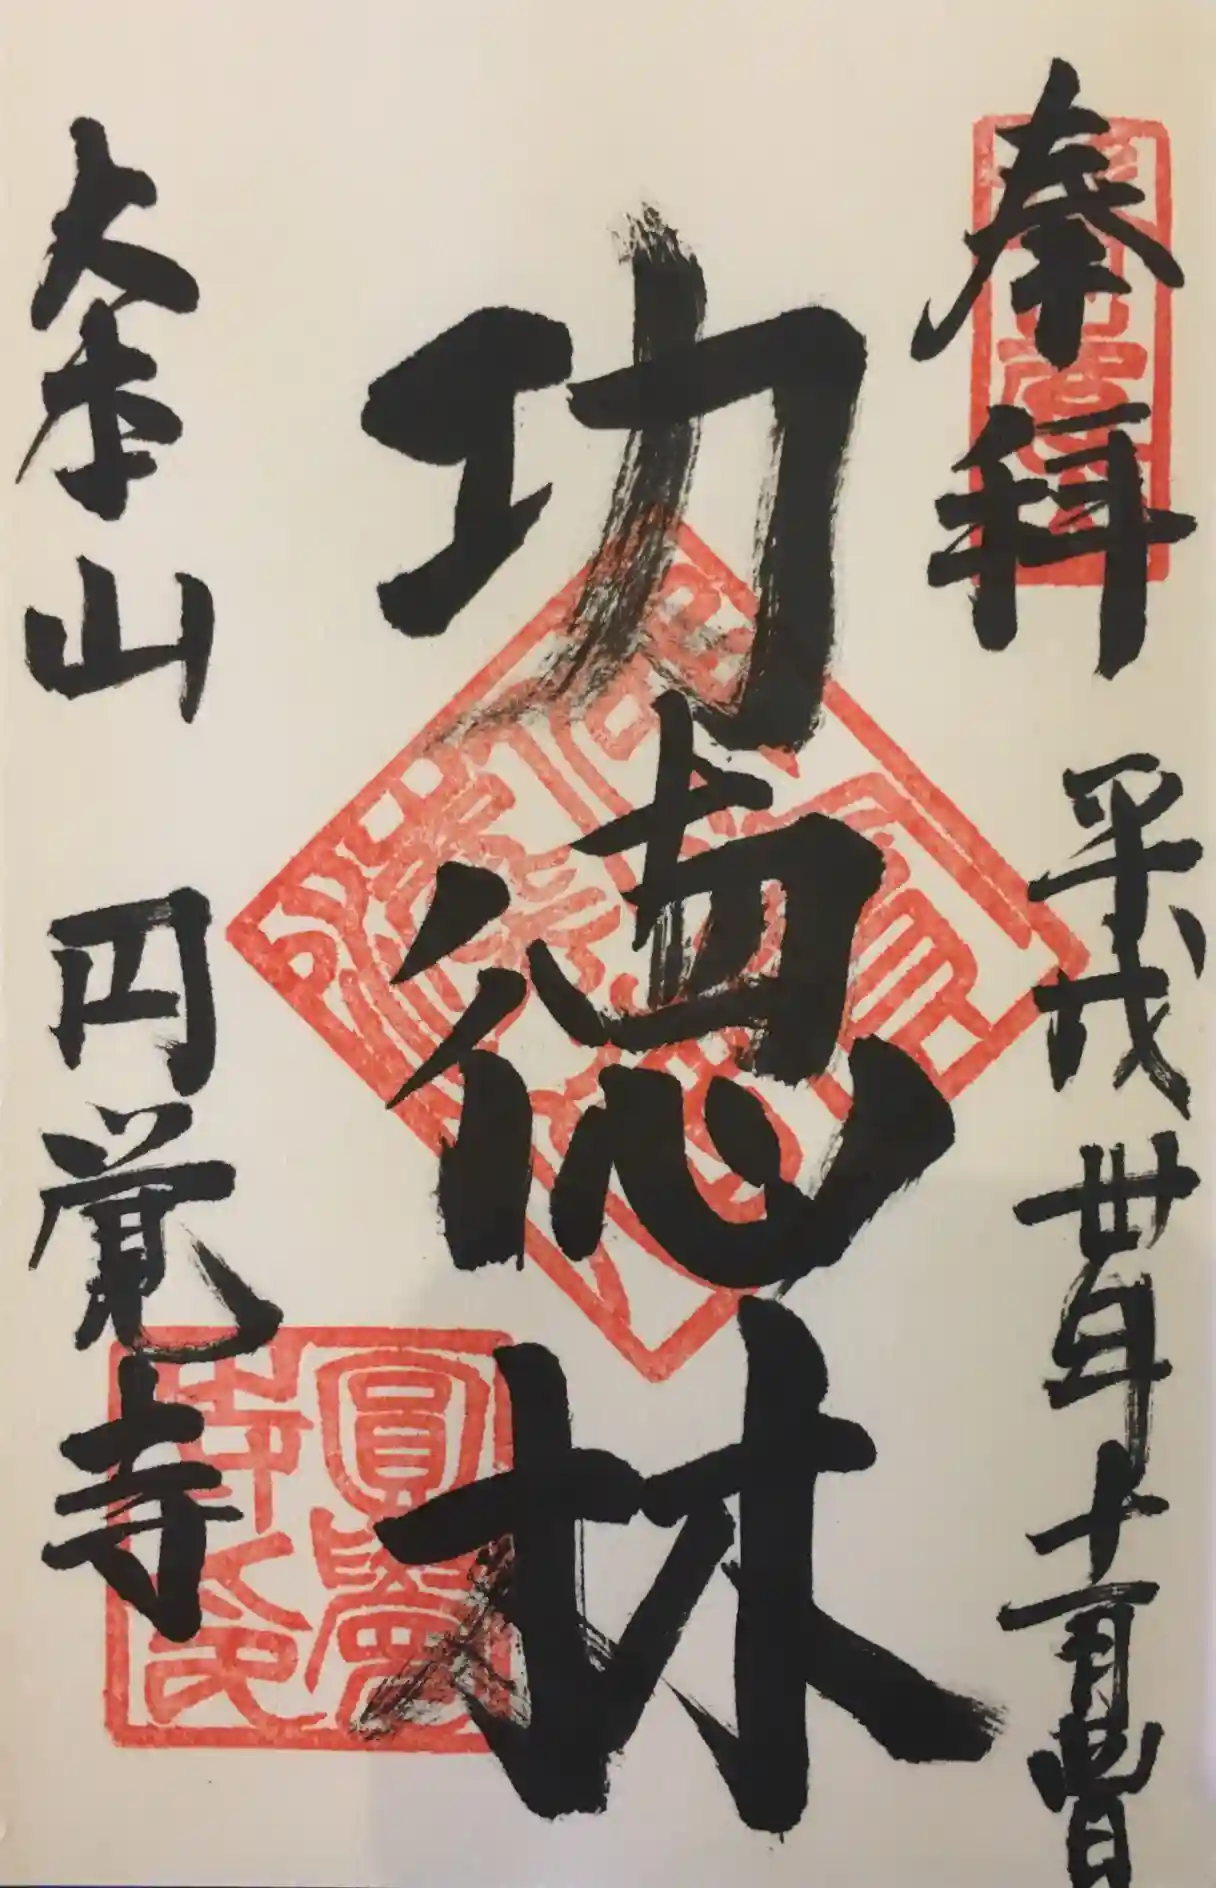 奉拝 平成卅年十一月
功徳林
大本山 円覚寺
圓覺寺印